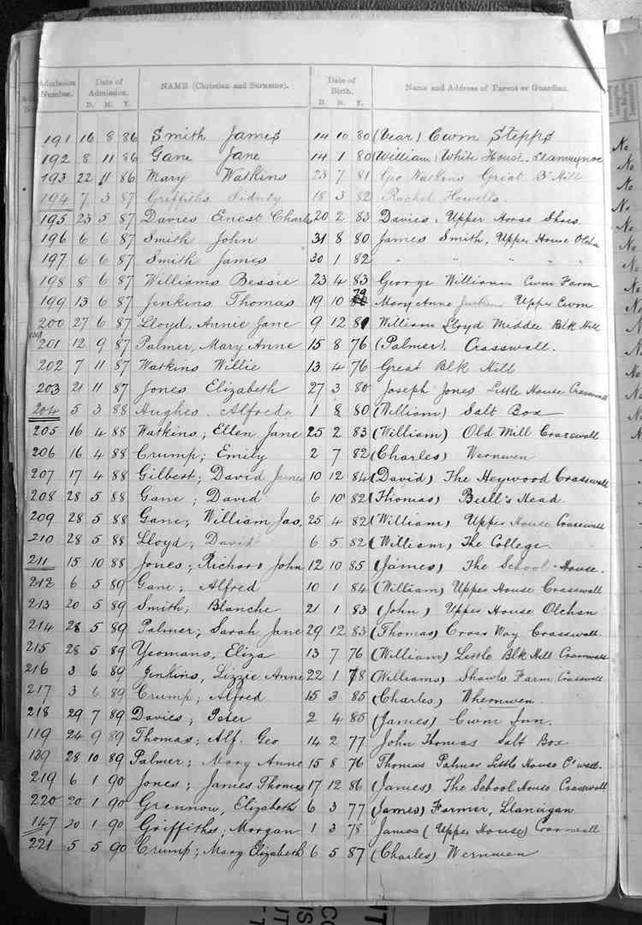 Admission Number. Date of Admission. NAME (Christian and Surname). Date of Birth. Name and Address of Parent or Guardian.
D. M. Y. D. M. Y.
191 16 8 86 Smith James 14 10 80 (Vear) Cwm Stepps
192 8 11 86 Gane Jane 14 1 80 (William) White House, Llanveynoe
193 22 11 86 Mary Watkins 23 7 81 Geo Watkins Great B Hill
194 7 3 87 Griffiths Sidney 18 3 82 Rachel Howells
195 23 5 87 Davies Enest Charle 20 2 83 Davies, Upper House Shos
196 6 6 87 Smith John 31 8 80 James Smith, Upper House Olchn
197 6 6 87 Smith James 30 1 82 " " " "
198 8 6 87 Williams Bessie 23 4 83 George Williams Cwm Farm
199 13 6 87 Jenkins Thomas 19 10 79 Mary Anne Jenkins Upper Cwm
200 27 6 87 Lloyd, Annie Jane 9 12 81 William Lloyd Middle Blk Hill
201 12 9 87 Palmer, Mary Anne 15 8 76 (Palmer). Crasswall.
202 7 11 87 Watkins Willie 13 4 76 Great Blk Hill
203 21 11 87 Jones Elizabeth 27 3 80 Joseph Jones Little House Crasswall
204 5 3 88 Hughes Alfred 1 8 80 (William) Salt Box
205 16 4 88 Watkins, Ellen Jane 25 2 83 (William) Old Mill Crasswall
206 16 4 88 Crump; Emily 2 7 82 (Charles) Wernwen
207 17 4 88 Gilbert; David James 10 12 84 (David) The Heywood Crasswall
208 28 5 88 Gane; David 6 10 82 (Thomas) Bull's Head.
209 28 5 88 Gane; William Jas. 25 4 82 (William) Upper House Crasswall
210 28 5 88 Lloyd; David 6 5 82 (William) The College.
211 15 10 88 Jones; Richard John 12 10 85 (James) The School-House.
212 6 5 89 Gane; Alfred 10 1 84 (William) Upper House Crasswall
213 20 5 89 Smith; Blanche 21 1 83 (John) Upper House Olchon
214 28 5 89 Palmer; Sarah Jane 29 12 83 (Thomas) Cross Way Crasswall.
215 28 5 89 Yeomans, Eliza 13 7 76 (William) Little Blk Hill Crasswall
216 3 6 89 Jenkins, Lizzie Anne 22 1 78 (Williams) Shawls Farm Crasswall
217 3 6 89 Crump; Alfred 15 3 85 (Charles) Whernwen
218 29 7 89 Davies; Peter 2 4 85 (James) Cwm Inn.
119 24 9 89 Thomas; Alf. Geo 14 2 77 John Thomas Salt Box
139 28 10 89 Palmer; Mary Anne 15 8 76 Thomas Palmer Little House C'wall.
219 6 1 90 Jones; James Thomas 17 12 86 (James) The School House Crasswall
220 20 1 90 Grennow, Elizabeth 6 3 77 (James) Farmer, Llanigan.
147 20 1 90 Griffiths, Morgan 1 3 78 James (Upper House) Crasswall
221 5 5 90 Crump; Mary Elizabeth 6 5 87 (Charles) Wernwen